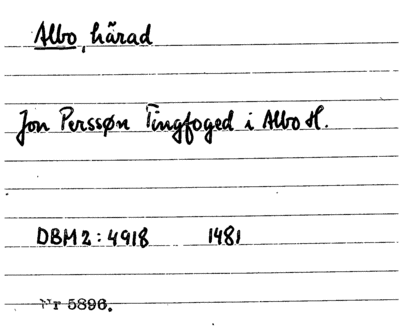 Albo, härad
Jon Perssøn Tingfoged i Albo H.
DBM 2: 4918 1481
Nr 5896.